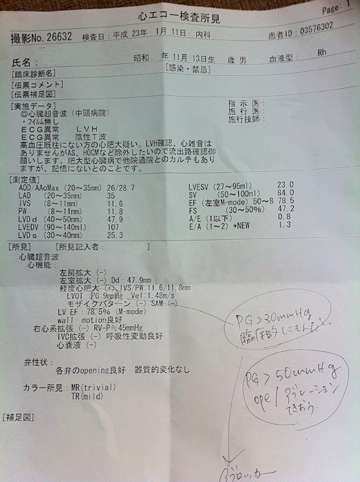 心エコー検査所見
Page: 1
撮影No. 26632 検査日：平成 23年 1月 11日 内科 患者ID：03576302
氏名： 昭和 年 11月 13日生 歳 男 血液型： Rh
[臨床診断名] [感染・禁忌]
[伝票コメント]
[伝票補足図]
[実施データ] 指示医：
◎心臓超音波（中頭病院） 施行医：
・フィルム無し 施行技師：
ＥＣＧ異常 ＬＶＨ
ＥＣＧ異常 陰性Ｔ波
高血圧既往にない方の心肥大疑い。LVH確認、心雑音は
ありませんがAS、HOCMなど除外したいので流出路確認御
願いします。肥大型心臓病で他院通院とのカルテもあり
ますが、記憶にないとのことです。
[測定値]
AOD/AAoMax (20～35mm) 26/28.7 LVESV (27～95ml) 23.0
LAD (20～35mm) 35 SV (50～100ml) 84.0
IVS (8～11mm) 11.6 EF (左室M-mode) 50～8 78.5
PW (8～11mm) 11.8 FS (30～50%) 47.2
LVDd (40～50mm) 47.9 A/E (1以下) 0.8
LVEDV (90～140ml) 107 E/A (1～2) *NEW 1.3
LVDs (30～40mm) 25.3
[所見] [所見記入者： ]
心臓超音波
心機能：
左房拡大 (-)
左室拡大 (-) Dd: 47.9mm
軽度心肥大 IVS/PW:11.6/11.8mm
LVOT PG 9mmHg, Vel:1.48m/s
モザイクパターン (-) SAM (-)
LV EF: 78.5% (M-mode)
wall motion良好
右心系拡張 (-) RV-P≒45mmHg
IVC拡張 (-) 呼吸性変動良好
心嚢液 (-)
PG>30mmHg
臨床的に
弁性状：
各弁のopening良好 器質的変化なし
PG>50mmHg
ope/アブレーション
カラー所見：MR(trivial)
TR(mild)
[補足図]